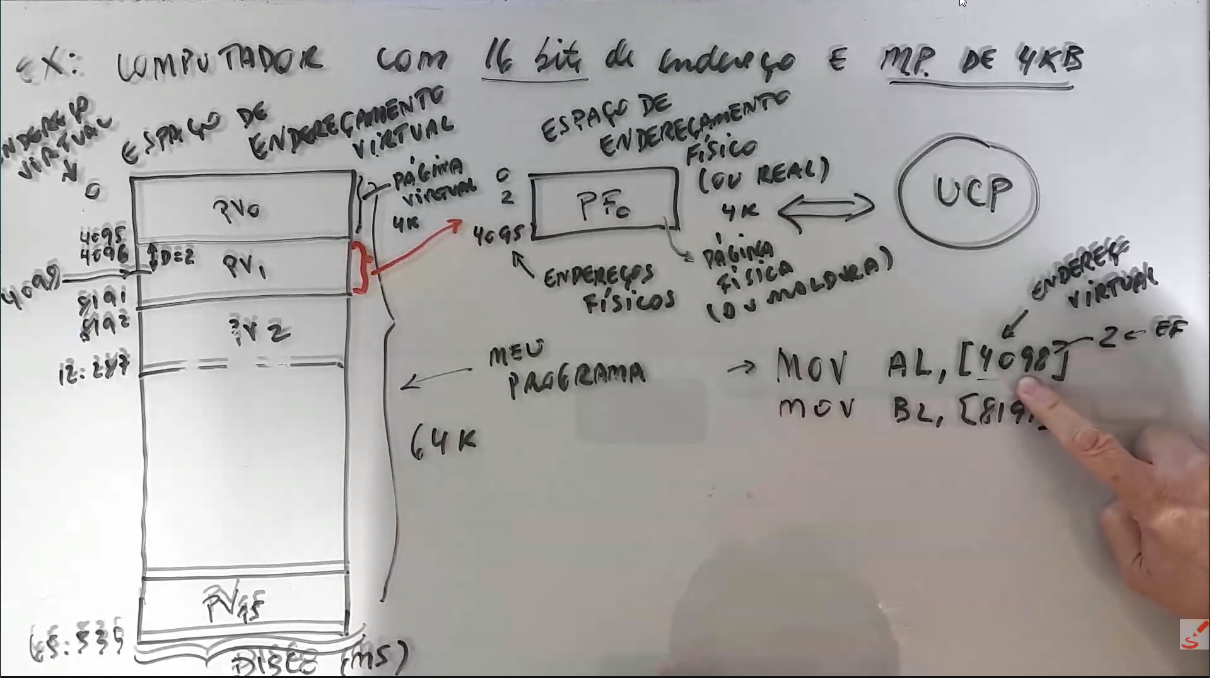 EX: COMPUTADOR COM 16 bits de endereço E M.P. DE 4KB
ENDEREÇO
VIRTUAL
ESPAÇO DE
ENDEREÇAMENTO
VIRTUAL
0
PV0
4095
4096
D=2
4098
PV1
8191
8192
PV2
12.287
PV15
65.535
DISCO (MS)
PÁGINA
VIRTUAL
4K
64K
MEU
PROGRAMA
ESPAÇO DE
ENDEREÇAMENTO
FÍSICO
(OU REAL)
4K
0
2
4095
PF0
ENDEREÇOS
FÍSICOS
PÁGINA
FÍSICA
(OU MOLDURA)
UCP
ENDEREÇO
VIRTUAL
MOV AL, [4098] 2 ← EF
MOV BL, [8191